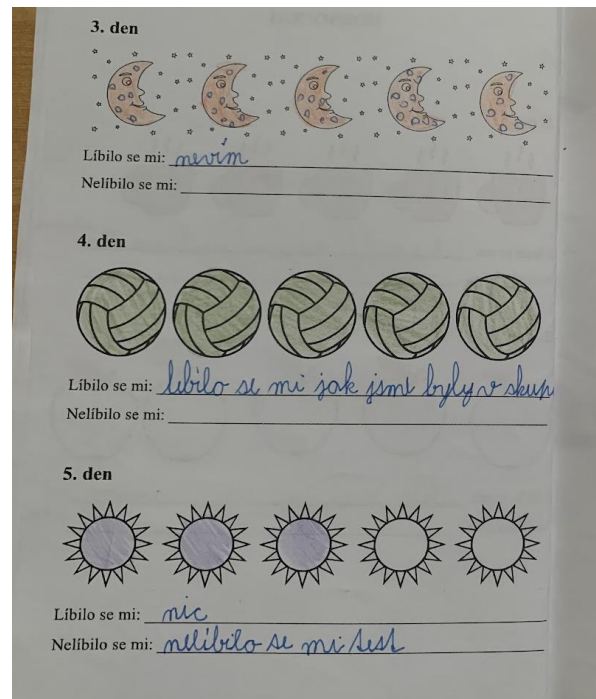 3. den
Líbilo se mi: nevím
Nelíbilo se mi:
4. den
Líbilo se mi: líbilo se mi jak jsme byly v skup
Nelíbilo se mi:
5. den
Líbilo se mi: nic
Nelíbilo se mi: nelíbilo se mi test